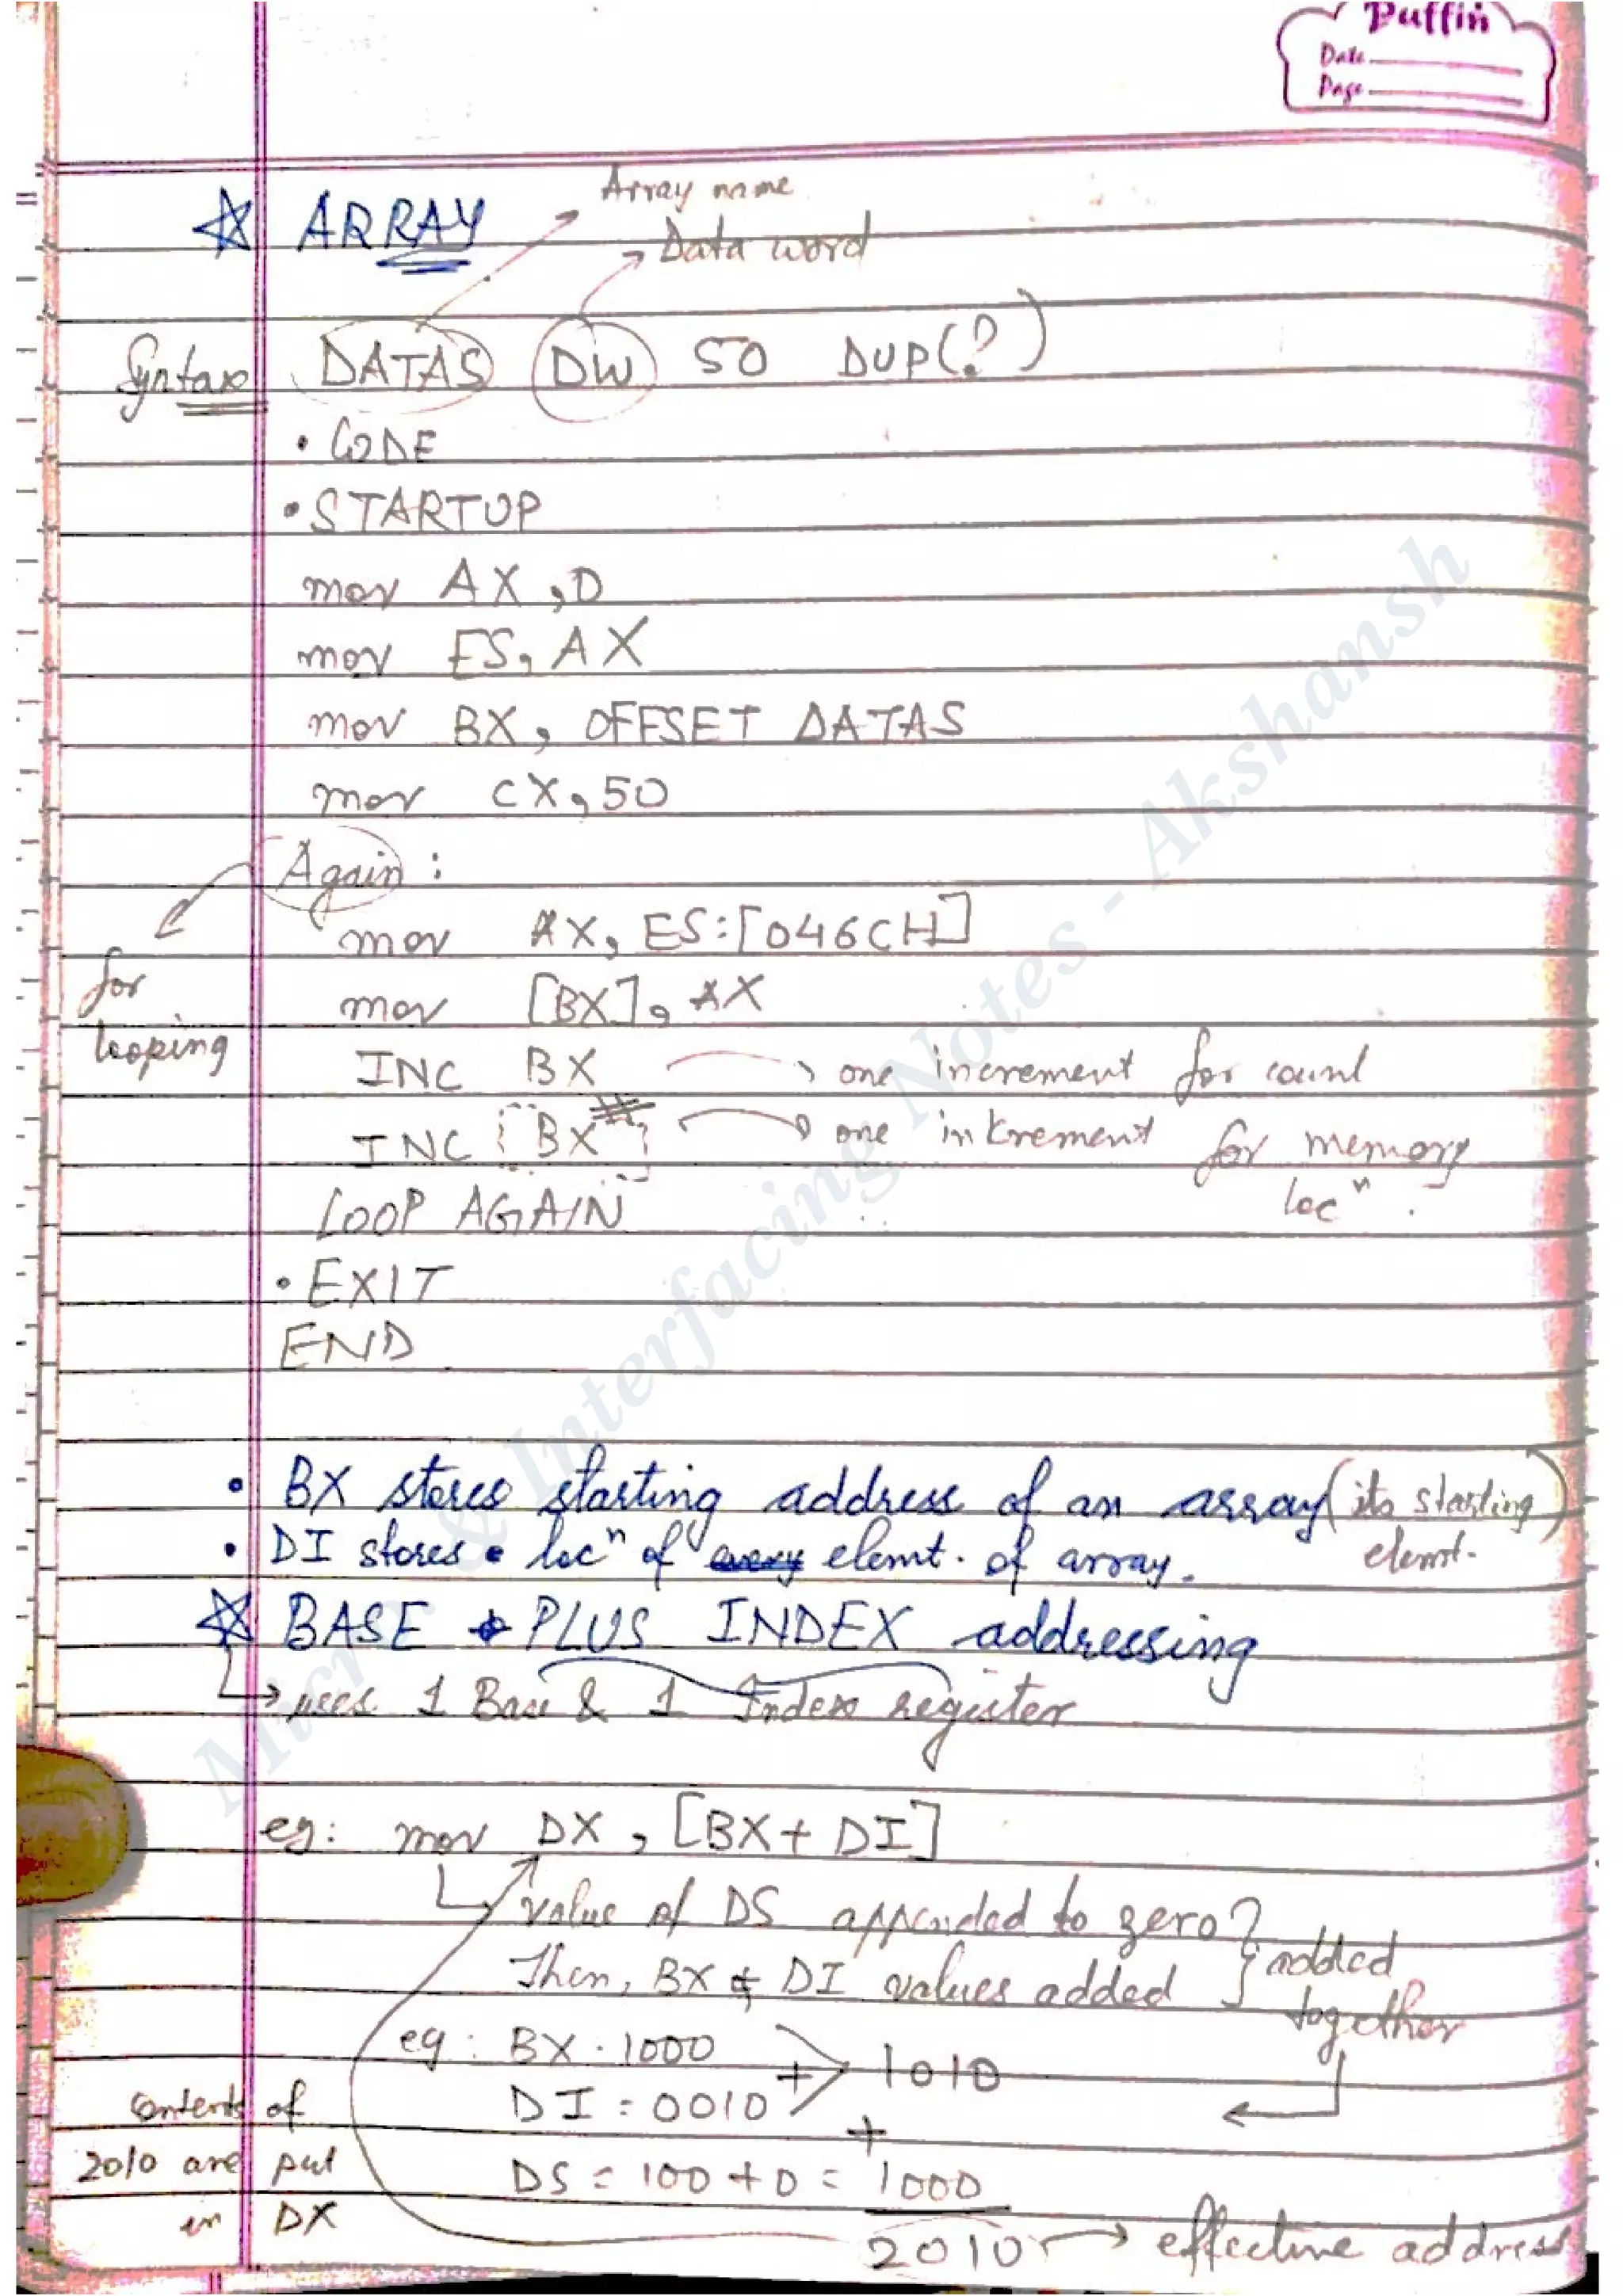 Puffin
Date
Page
☆ ARRAY
Array name
Data word
Syntax DATAS DW 50 DUP(?)
• CODE
• STARTUP
mov AX, 0
mov ES, AX
mov BX, OFFSET DATAS
mov CX, 50
Again :
for looping
mov AX, ES:[046CH]
mov [BX], AX
INC BX → one increment for count
INC BX → one inkrement for memory locⁿ.
LOOP AGAIN
• EXIT
END
• BX stores starting address of an array (its starting elemt.)
• DI stores locⁿ of elemt. of array.
☆ BASE PLUS INDEX addressing
↳ uses 1 Base & 1 Index register
eg: mov DX, [BX + DI]
↳ value of DS appended to zero } added together
Then, BX & DI values added
eg : BX . 1000
+ 1010
DI : 0010
+
DS = 100 + 0 = 1000
2010 → effective address
contents of
2010 are put
in DX
Micro & Interfacing Notes - Akshansh